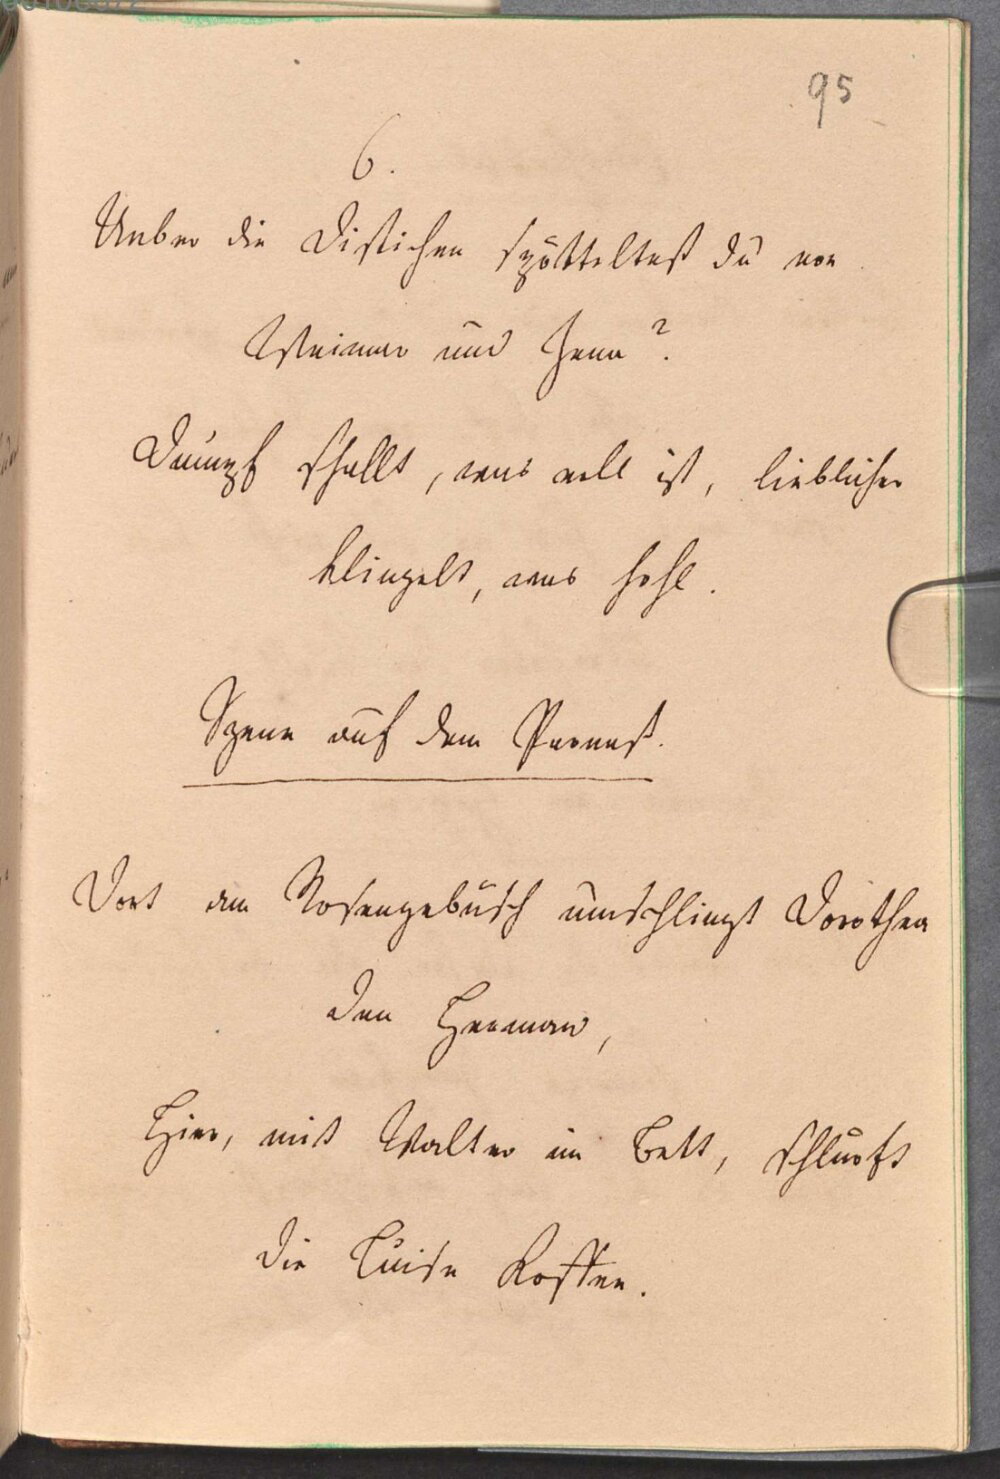 95
6.
Ueber die Distichen spötteltest du von
Weimar und Jena?
Dumpf schallt, was voll ist, lieblicher
klingelt, was hohl.
Szene auf dem Parnaß.
Dort am Rosengebüsch umschlingt Dorothea
den Herman,
Hier, mit Walter im Bett, schlurft
die Luise Koffee.